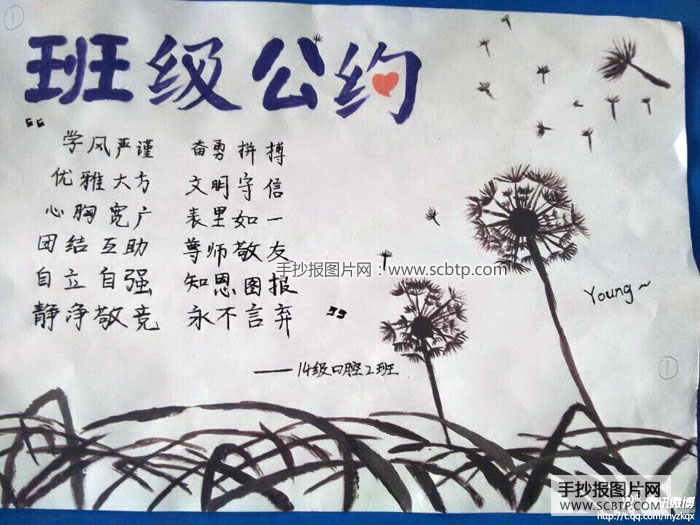 班级公约
“
学风严谨 奋勇拼搏
优雅大方 文明守信
心胸宽广 表里如一
团结互助 尊师敬友
自立自强 知恩图报
静净敬竞 永不言弃
”
——14级口腔2班
Young~
1
1
手抄报图片网:www.scbtp.com
手抄报图片网
WWW.SCBTP.COM
腾讯微博
http://t.qq.com/lhyzkqx